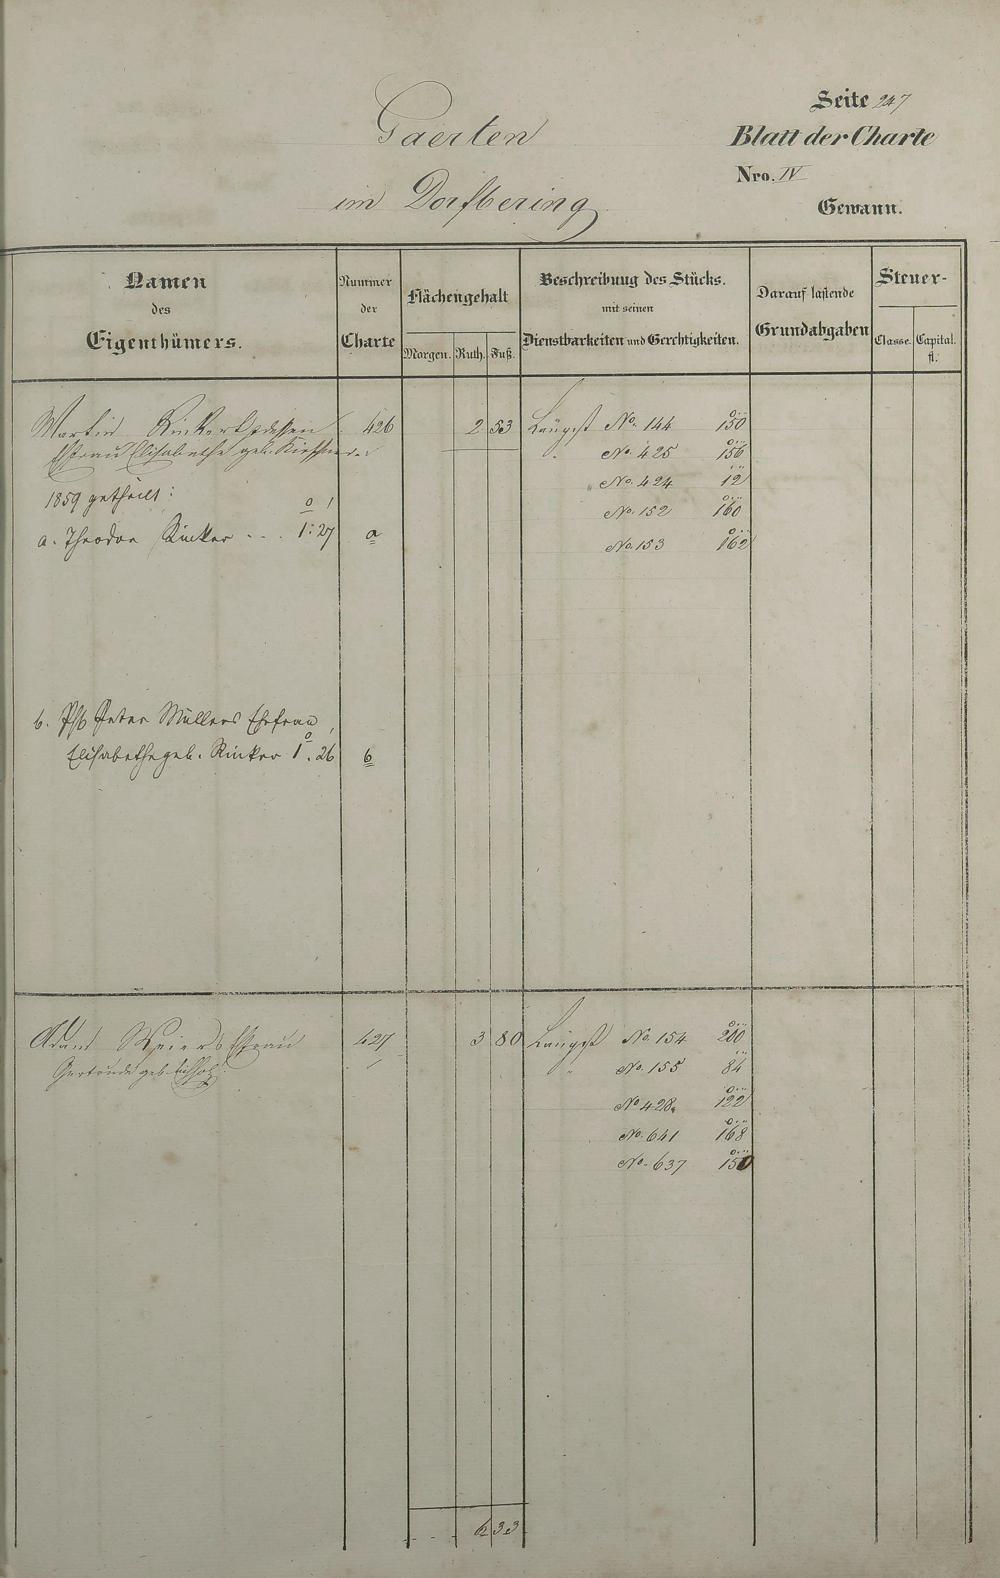 Gaerten
im Dorfbering
Seite 247
Blatt der Charte
Nro. IV
Gewann.
Namen
des
Eigenthümers.
Nummer
der
Charte
Flächengehalt
Morgen. Ruth. Fuß.
Beschreibung des Stücks.
mit seinen
Dienstbarkeiten und Gerechtigkeiten.
Darauf lastende
Grundabgaben
Steuer-
Classe. Capital.
fl.
Martin Rinker dessen 426 2 53 Längst No. 144 150
Ehfrau Elisabethe geb. " No. 425 156
1859 getheilt: " No. 424 12
a. Theodor Rinker 1:27 a No. 152 160
No. 153 162
b. Peter Müllers Ehefrau
Elisabethe geb. Rinker 1.26 b
Adam Meiers Ehfrau 427 3 80 Längst No. 154 200
Gertrude geb. " No. 155 84
No 428. 122
No. 641 168
No. 637 150
6 33